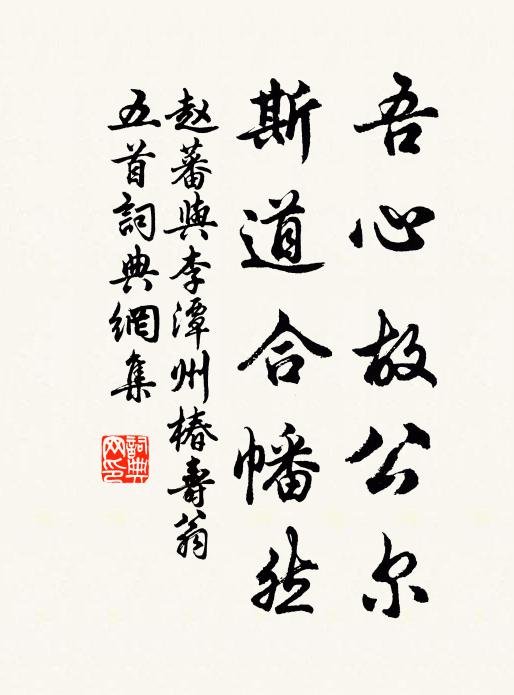 吾心故公尔
斯道合幡然
赵蕃與李潭州椿壽翁
五首詞典網集
詞典
网印